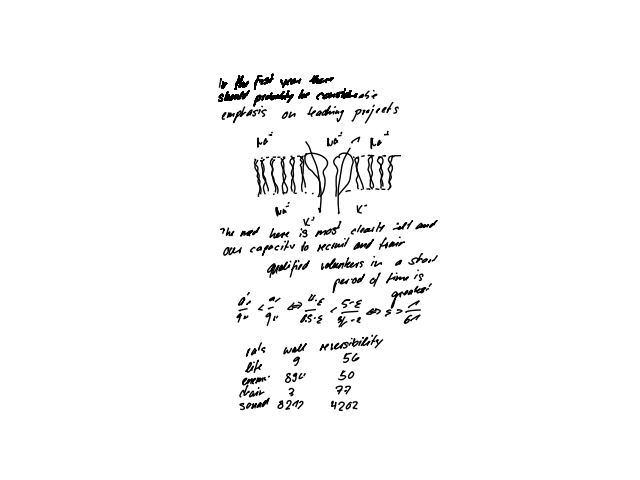 In the first year there
should probably be considerable
emphasis on teaching projects
Na⁺ Na⁺ Na⁺
Na⁺ K⁺ K⁺
The need here is most clearly felt and
our capacity to recruit and train
qualified volunteers in a short
period of time is
greatest
rats wall reversibility
life 9 56
50
chair 77
sound 4202